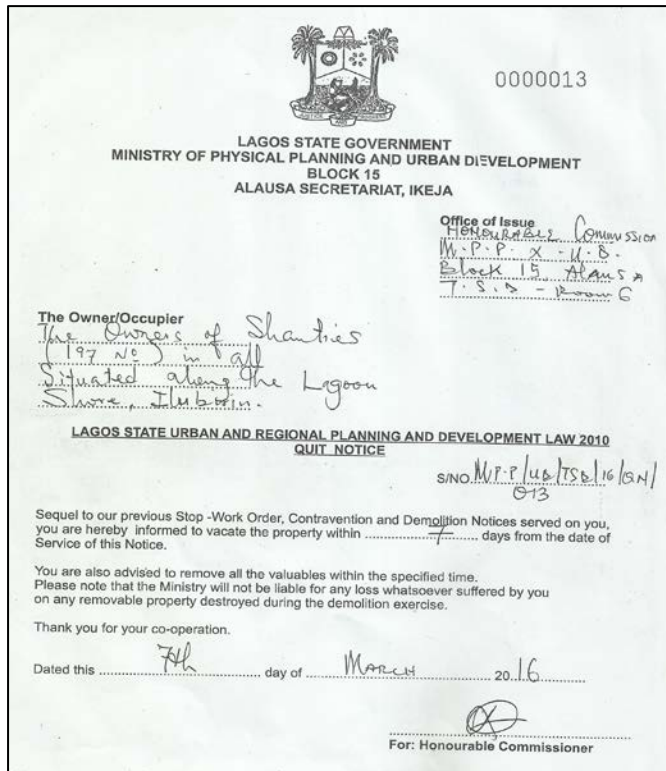 0000013
LAGOS STATE GOVERNMENT
MINISTRY OF PHYSICAL PLANNING AND URBAN DEVELOPMENT
BLOCK 15
ALAUSA SECRETARIAT, IKEJA
Office of Issue
HONOURABLE Commission
M.P.P. X - U.B.
Block 15, Alausa
T.S.D - Room 6
The Owner/Occupier
The Owners of Shanties
(197 No) in all
Situated along the Lagoon
Shore, Ilubirin.
LAGOS STATE URBAN AND REGIONAL PLANNING AND DEVELOPMENT LAW 2010
QUIT NOTICE
S/NO M.P.P/UB/TSB/16/QN/
013
Sequel to our previous Stop -Work Order, Contravention and Demolition Notices served on you,
you are hereby informed to vacate the property within 7 days from the date of
Service of this Notice.
You are also advised to remove all the valuables within the specified time.
Please note that the Ministry will not be liable for any loss whatsoever suffered by you
on any removable property destroyed during the demolition exercise.
Thank you for your co-operation.
Dated this 7th day of MARCH 2016
For: Honourable Commissioner